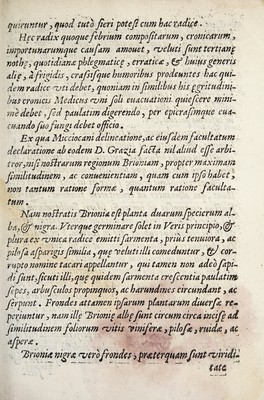 quieuntur, quod tutò fieri potest cum hac radice.
Hęc radix quoque febrium compositarum, cronicarum,
importunarumque causam amouet, veluti sunt tertianę
nothę, quotidianę phlegmaticę, erraticę, & huius generis
alię, à frigidis, crassisque humoribus prodeuntes hac qui-
dem radice vti debet, quoniam in similibus his ęgritudini-
bus cronicis Medicus vni soli euacuationi quiescere mini-
mè debet, sed paulatim digerendo, per epicrasimque eua-
cuando suo fungi debet officio.
Ex qua Micciocani delineatione, ac eiusdem facultatum
declaratione ab eodem D. Grazia facta nil aliud esse arbi-
tror, nisi nostrarum regionum Brioniam, propter maximam
similitudinem, ac conuenientiam, quam cum ipso habet,
non tantum ratione formę, quantum ratione faculta-
tum.
Nam nostratis Brionia est planta duarum specierum al-
ba, & nigra. Vterque germinare solet in Veris principio, &
plura ex vnica radice emittis sarmenta, prius tenuiora, ac
pilosa asparigis similia, quę velut illi comeduntur, & cor-
rupto nomine tacari appellantur, qui tamen non adeò sapi-
di sunt, sicuti illi, quę quidem sarmenta crescentia paulatim
sepes, arbusculos propinquos, ac harundines circundant, ac
serpunt. Frondes attamen ipsarum plantarum diuersę re-
periuntur, nam illę Brionię albę sunt circum circa incisę ad
similitudinem foliorum vitis viniferę, pilosę, ruidę, ac
asperę.
Brionię nigrę verò frondes, pręterquam sunt viridi-
tate